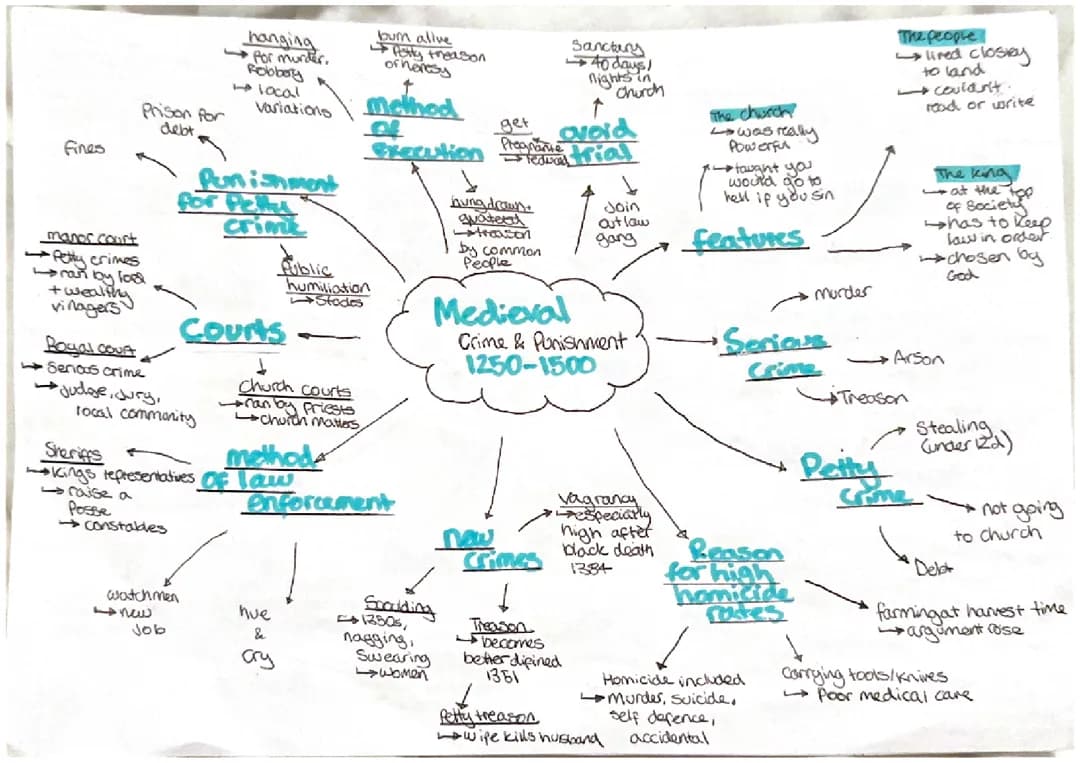 Medieval
Crime & Punishment
1250-1500
Method of
execution
hanging
→ for murder,
robbery
→ local
variations
burn alive
→ Petty treason
or heresy
hung drawn,
quatered
→ treason
by common
people
avoid
trial
Sanctary
→ 40 days/
nights in
church
get
→ reduced
Join
outlaw
gang
features
The church
→ was really
Powerful
→ taught you
would go to
hell if you sin
The people
→ lived closley
to land
→ couldn't
read or write
The King
→ at the top
of society
→ has to keep
law in order
→ chosen by
God
Serious
Crime
murder
Arson
Treason
Petty
Crime
Stealing
(under 12d)
not going
to church
Debt
Reason
for high
homicide
rates
farming at harvest time
→ argument rose
Carrying tools/knives
→ Poor medical care
Homicide included
→ Murder, suicide,
self defence,
accidental
new
crimes
Vagrancy
→ especially
high after
black death
Scoulding
→ 1350s,
nagging,
Swearing
→ women
Treason
→ becomes
better difined
1351
Petty treason
→ wife kills husband
method
of law
enforcement
Sheriffs
→ Kings representatives
→ raise a
Posse
→ constables
watchmen
→ new
Job
hue
&
cry
Courts
manor court
→ Petty crimes
→ ran by lord
+ wealthy
villagers
Royal court
→ Serious crime
→ judge, jury,
local community
Church courts
→ ran by Priests
→ church matters
Punishment
for Petty
crime
Prison for
debt
fines
Public
humiliation
→ Stocks